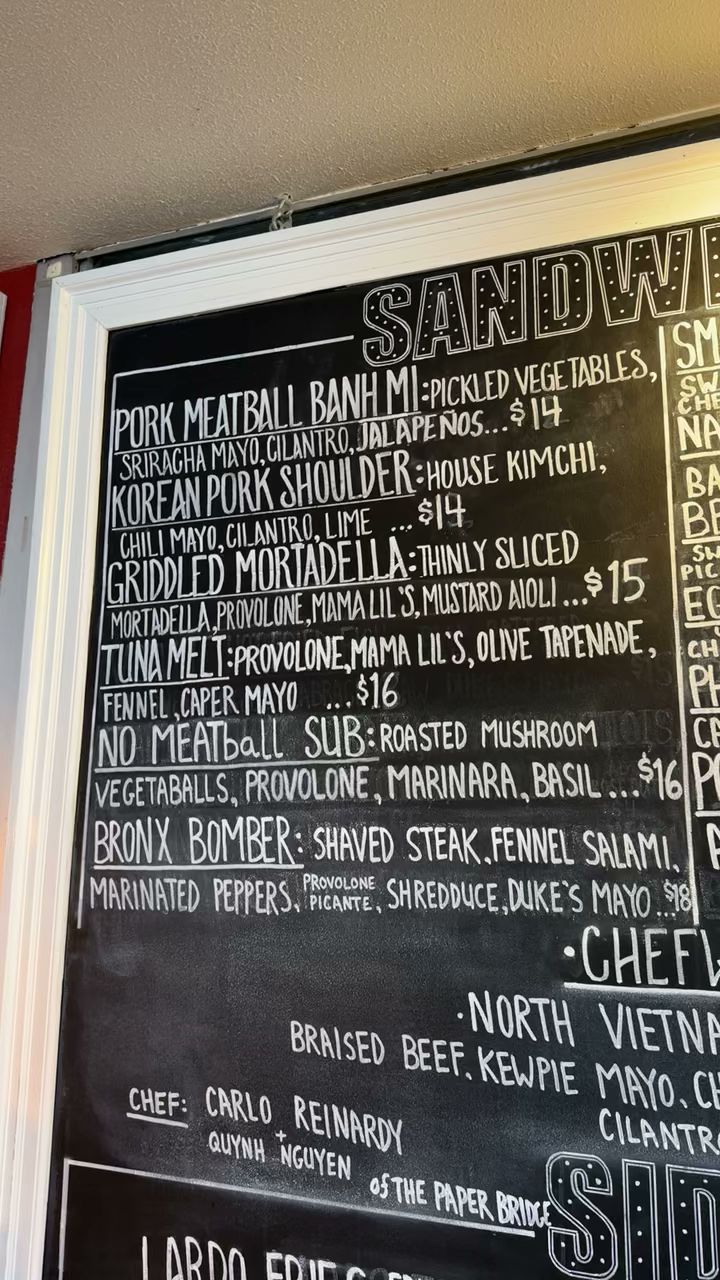 SANDW
PORK MEATBALL BANH MI: PICKLED VEGETABLES,
SRIRACHA MAYO, CILANTRO, JALAPEÑOS...$14
KOREAN PORK SHOULDER: HOUSE KIMCHI,
CHILI MAYO, CILANTRO, LIME ...$14
GRIDDLED MORTADELLA: THINLY SLICED
MORTADELLA, PROVOLONE, MAMA LIL'S, MUSTARD AIOLI...$15
TUNA MELT: PROVOLONE, MAMA LIL'S, OLIVE TAPENADE,
FENNEL, CAPER MAYO ...$16
NO MEATball SUB: ROASTED MUSHROOM
VEGETABALLS, PROVOLONE, MARINARA, BASIL...$16
BRONX BOMBER: SHAVED STEAK, FENNEL SALAMI,
MARINATED PEPPERS, PROVOLONE PICANTE, SHREDDUCE, DUKE'S MAYO...$18
SM
SW
CHE
NA
BA
BE
SW
PIC
EG
CH
PH
CA
PO
A
·CHEF
·NORTH VIETNA
BRAISED BEEF, KEWPIE MAYO, CH
CILANTR
CHEF: CARLO REINARDY
+
QUYNH NGUYEN
of THE PAPER BRIDGE
SID
LARDO FRIES